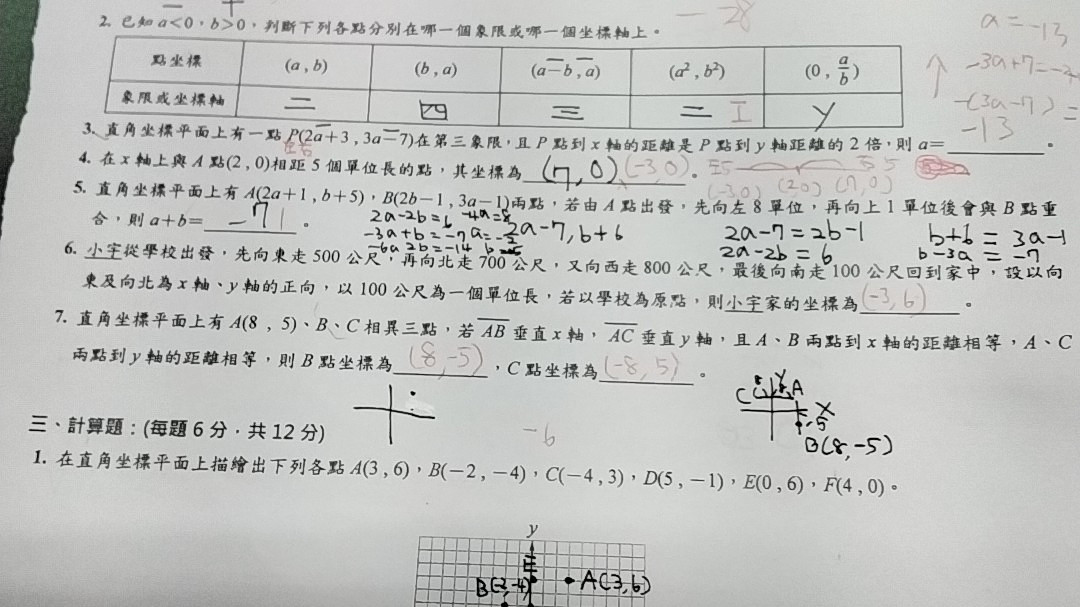 −28
2. 已知 a<0，b>0，判斷下列各點分別在哪一個象限或哪一個坐標軸上。
點坐標 (a , b) (b , a) (a−b , a) (a² , b²) (0 , a/b)
象限或坐標軸 二 四 三 二 工 y
a = −13
−3a+7=
−(3a−7) =
−13
3. 直角坐標平面上有一點 P(2a+3 , 3a−7)在第三象限，且 P 點到 x 軸的距離是 P 點到 y 軸距離的 2 倍，則 a=＿＿＿＿。
4. 在 x 軸上與 A 點(2 , 0)相距 5 個單位長的點，其坐標為 (7, 0) (−3, 0)。
(−3,0) (2,0) (7,0)
5. 直角坐標平面上有 A(2a+1 , b+5)，B(2b−1 , 3a−1)兩點，若由 A 點出發，先向左 8 單位，再向上 1 單位後會與 B 點重
合，則 a+b= −7。
2a−2b=6 −4a=8
−3a+b=−7 a=−2
−6a 2b=−14
2a−7, b+6
2a−7=2b−1
2a−2b=6
b+6=3a−1
b−3a=−7
6. 小宇從學校出發，先向東走 500 公尺，再向北走 700 公尺，又向西走 800 公尺，最後向南走 100 公尺回到家中，設以向
東及向北為 x 軸、y 軸的正向，以 100 公尺為一個單位長，若以學校為原點，則小宇家的坐標為 (−3, 6)。
7. 直角坐標平面上有 A(8 , 5)、B、C 相異三點，若 AB 垂直 x 軸，AC 垂直 y 軸，且 A、B 兩點到 x 軸的距離相等，A、C
兩點到 y 軸的距離相等，則 B 點坐標為 (8, −5)，C 點坐標為 (−8, 5)。
C y A
x
−5
B(8, −5)
三、計算題：(每題 6 分．共 12 分)
−6
1. 在直角坐標平面上描繪出下列各點 A(3 , 6)，B(−2 , −4)，C(−4 , 3)，D(5 , −1)，E(0 , 6)，F(4 , 0)。
y
E
B(−2,−4) A(3,6)